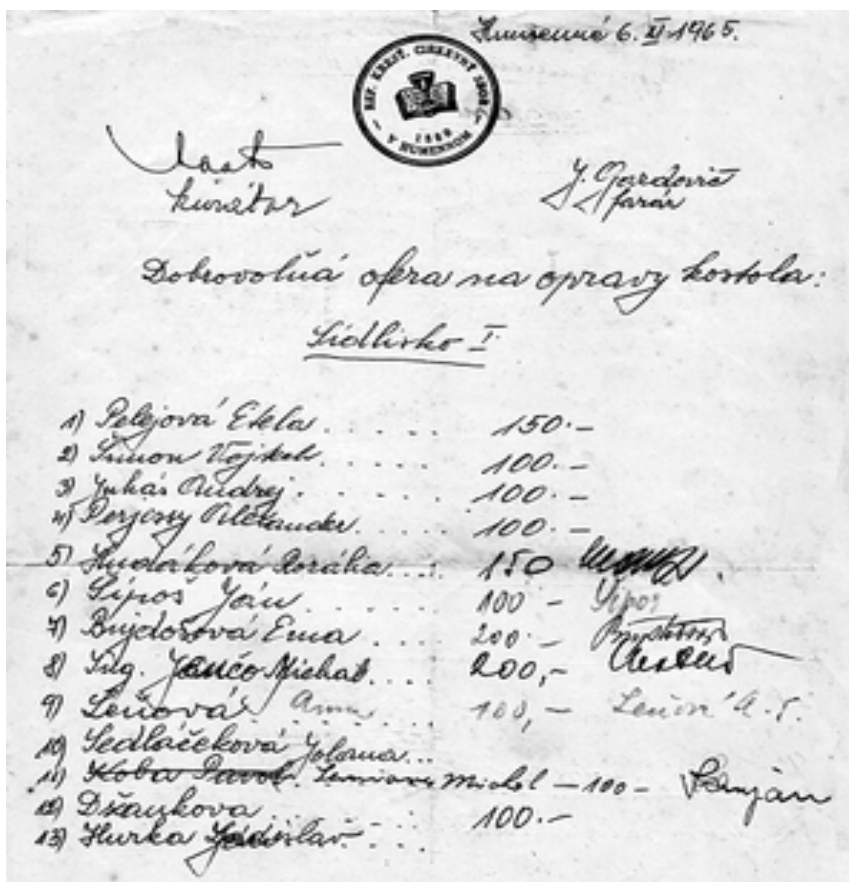 Humenné 6. XI. 1965.
REF. KRESŤ. CIRKEVNÝ SBOR
V HUMENNOM
kurátor
farár
Dobrovolná ofera na opravy kostola:
Sídlisko I
1) Pelejová Etela . . . . . 150.-
2) Šimon Vojtech . . . . . 100.-
3) Juhás Andrej . . . . . 100.-
4) Perjessy Alexander . . . . 100.-
5) Hudáková Rozália . . . 150
6) Sipoš Ján . . . . . 100 - Sipos
7) Bujdošová Ema . . . . 200.-
8) Ing. Jančo Michal . . . . 200,-
9) Leňová Anna . . . . 100,-
10) Sedláčeková Jolana . . .
11) Koba Pavol. Michal - 100 -
12) Džankova . . . . . 100.-
13) Hurka . . . .